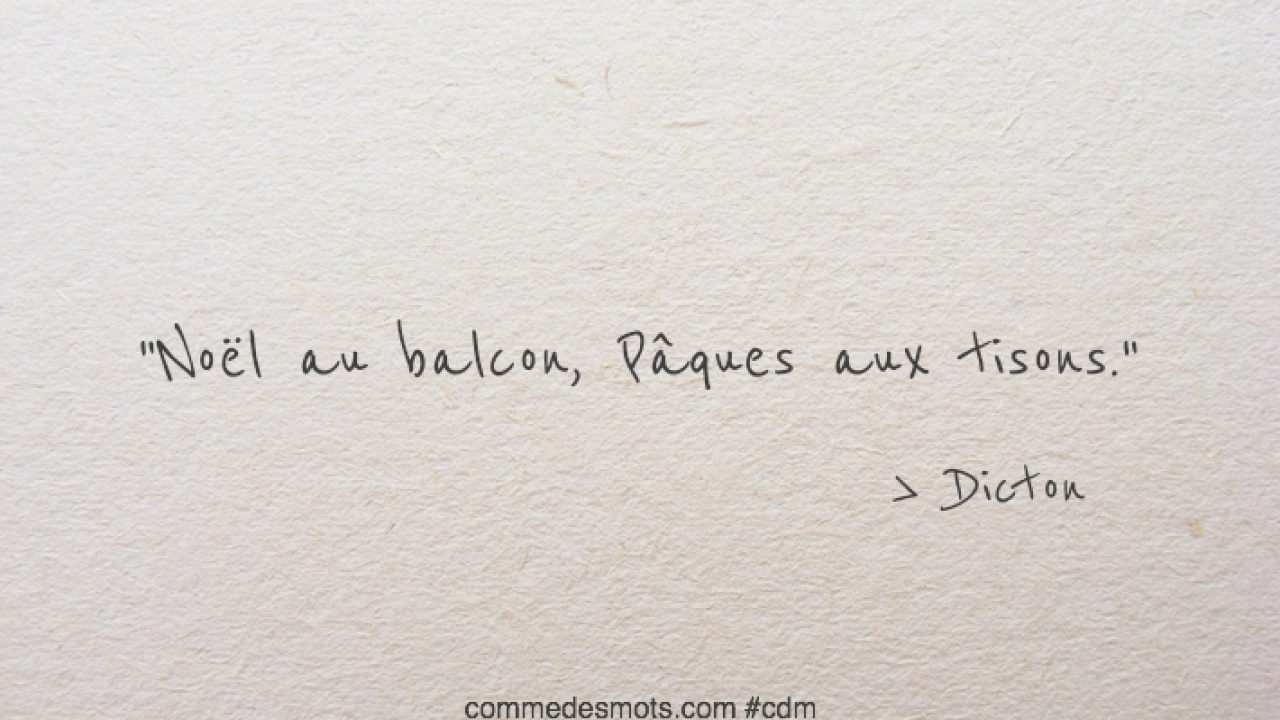 "Noël au balcon, Pâques aux tisons."
> Dicton
commedesmots.com #cdm